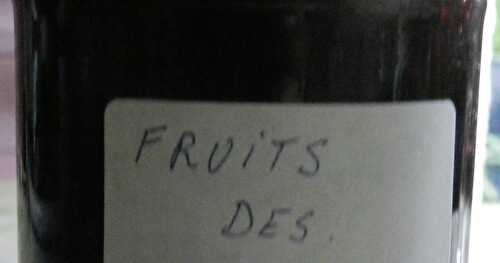 FRUiTS
DES.